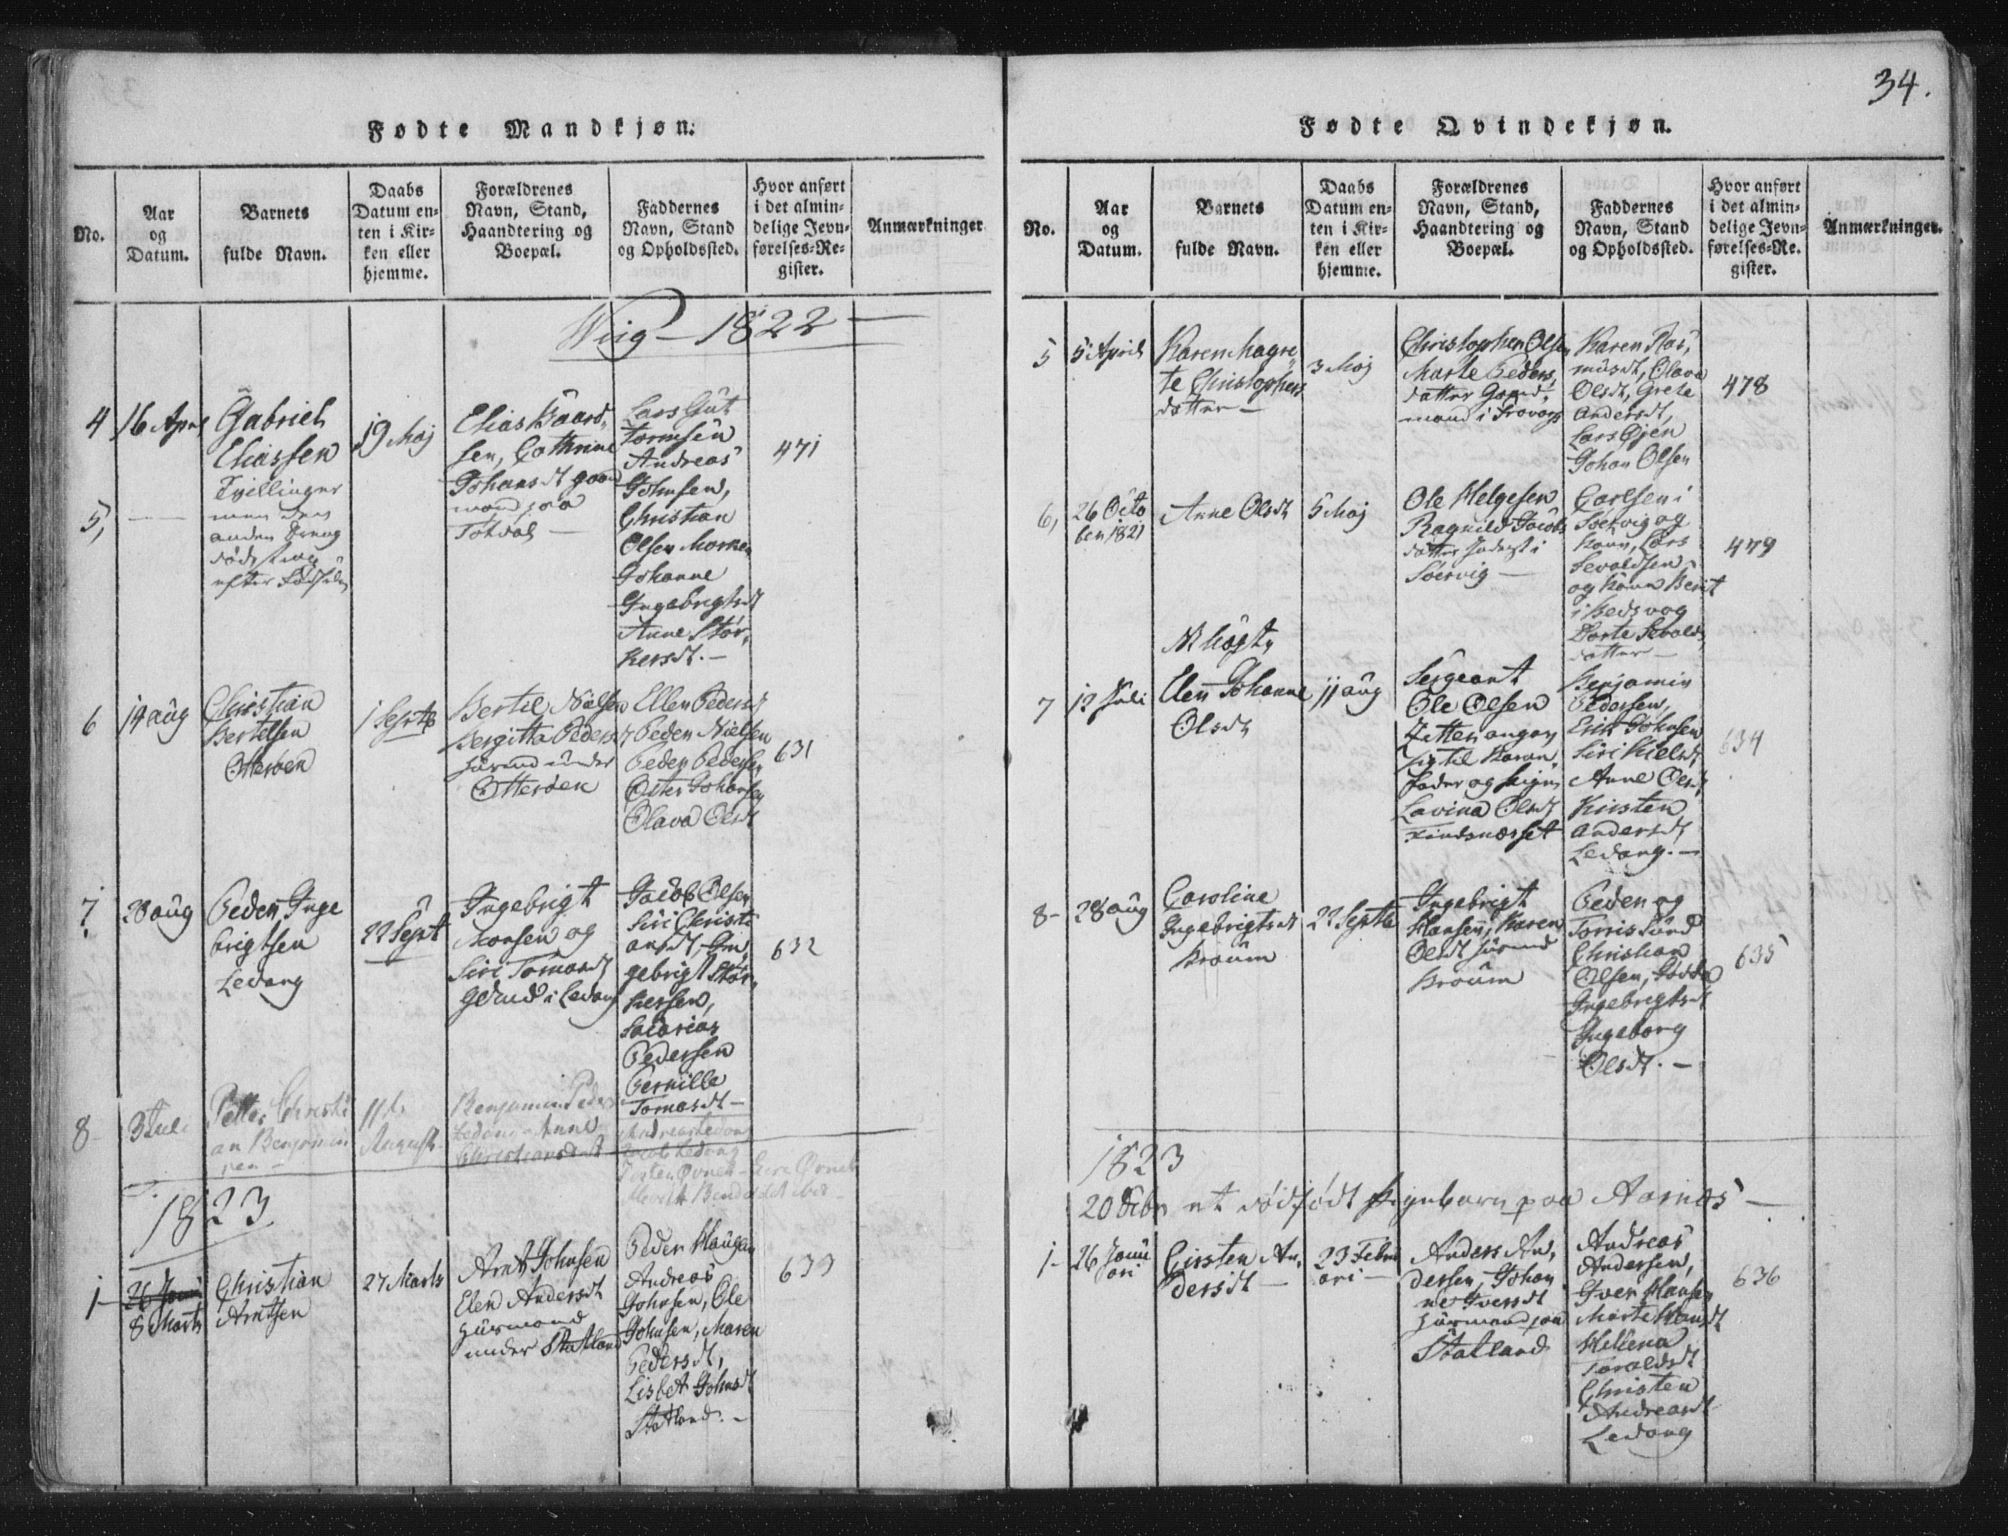 34.
Fødte Mandkjøn.
No.
Aar
og
Datum.
Barnets
fulde Navn.
Daabs
Datum en-
ten i Kir-
ken eller
hjemme.
Forældrenes
Navn, Stand,
Haandtering og
Boepæl.
Faddernes
Navn, Stand
og Opholdssted.
Hvor anført
i det almin-
delige Jevn-
førelses-Re-
gister.
Anmærkninger
Wiig – 1822 –
4
16 April
Gabriel
Eliassen
Tvillinger
men den
anden Dreng
døde strax
efter
19 Maj
Elias Baard-
sen, Cathrine
Johansdt gaard
mand paa
Totdal –
Lars Gut
tormsen
Andreas
Johnsen,
Christian
Olsen Morken
Johanne
Ingebrigtsdt
Anne Stør,
kersdt. –
471
5,
6
14 aug
Christian
Bertelsen
Otterøen
1 Septb
Bertil Nielsen
Bergitta Pedersdt
under
Otterøen
Ellen Pedersdt
Peder Nielsen
Peder Pedersen
Johansen
Olava Olsdt
631
7
28 aug
Peder Inge
brigtsen
Ledang
22 Sept
Ingebrigt
Monsen og
Siri Tomasdt
i Ledang
Jacob Olsen
Siri Christi
ansdt, In,
gebrigt Stør,
kersen,
Sacarias
Pedersen
Pernille
Tomasdt –
632
8
3 Juli
Petter Christi
an Benjamin
sen –
11te
August
Benjamin Peders
Ledang – Anne
Christiansdatt
Andreas Ledang
Jacob Ledang
1823
1 –
26 Janu
8 Marts
Christian
Arntsen
27 Marts
Arnt Johnsen
Elen Andersdt
Huusmand
under Statland
Peder Haugan
Andreas
Johnsen, Ole
Johnsen, Maren
Pedersdt,
Lisbet Johnsdt
Statland. –
633
Fødte Qvindekjøn.
No.
Aar
og
Datum.
Barnets
fulde Navn.
Daabs
Datum en-
ten i Kir-
ken eller
hjemme.
Forældrenes
Navn, Stand,
Haandtering og
Boepæl.
Faddernes
Navn, Stand
og Opholdssted.
Hvor anført
i det almin-
delige Jevn-
førelses-Re-
gister.
Anmærkninger.
5
5 April
Karen Magre
te Christophers
datter –
3 Maj
Christopher Olsen
Marte Peders,
datter Gaard,
mand i
Karen Ras,
musdt, Olava
Olsdt, Grete
Andersdt,
Lars Gjen
Johan Olsen
478
6,
26 Octo
ber 1821
Anne Olsdt
5 Maj
Ole Helgesen
Ragnild Jacobs
datter Inderst i
Soervig –
Carlsen i
Soelvig og
Kone, Lars
Sevaldsen
og Kone Berit
i
Dorte Sevalds,
datter –
479
7
12 Juli
Elen Johanne
Olsdt
11 aug
Sergeant
Ole Olsen
til Barn,
fader og Pigen
Lavina Olsdt
Findsnæsset
Benjamin
Pedersen,
Erik Johnsen
Siri Kield,
Anne Olsdt
Kirsten
Andersdt
Ledang. –
634
8 –
28 aug
Caroline
Ingebrigtsdt
Kroum
22 Septbr
Ingebrigt
Hansen, Karen
Olsdt
Kroum
Peder og
Torris Sund
Christian
Olsen,
Ingebrigtsdt
Ingeborg
Olsdt. –
635
1823
20 Febr et dødfødt Pigebarn paa Aarnes –
1 –
26 Janu
ari
Cirsten An,
dersdt –
23 Febru
ari –
Anders An,
dersen, Johan
ne Iversdt
Huusmand paa
Statland
Andreas
Andersen,
Iver Hansen
Marte Hansdt
Helena
Toraldsdt
Christen
Andreasdt
Ledang
636